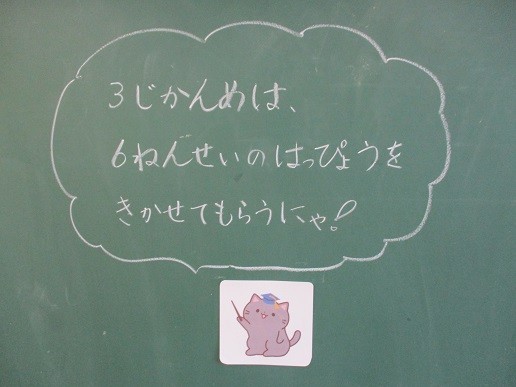 3じかんめは、
6ねんせいのはっぴょうを
きかせてもらうにゃ!